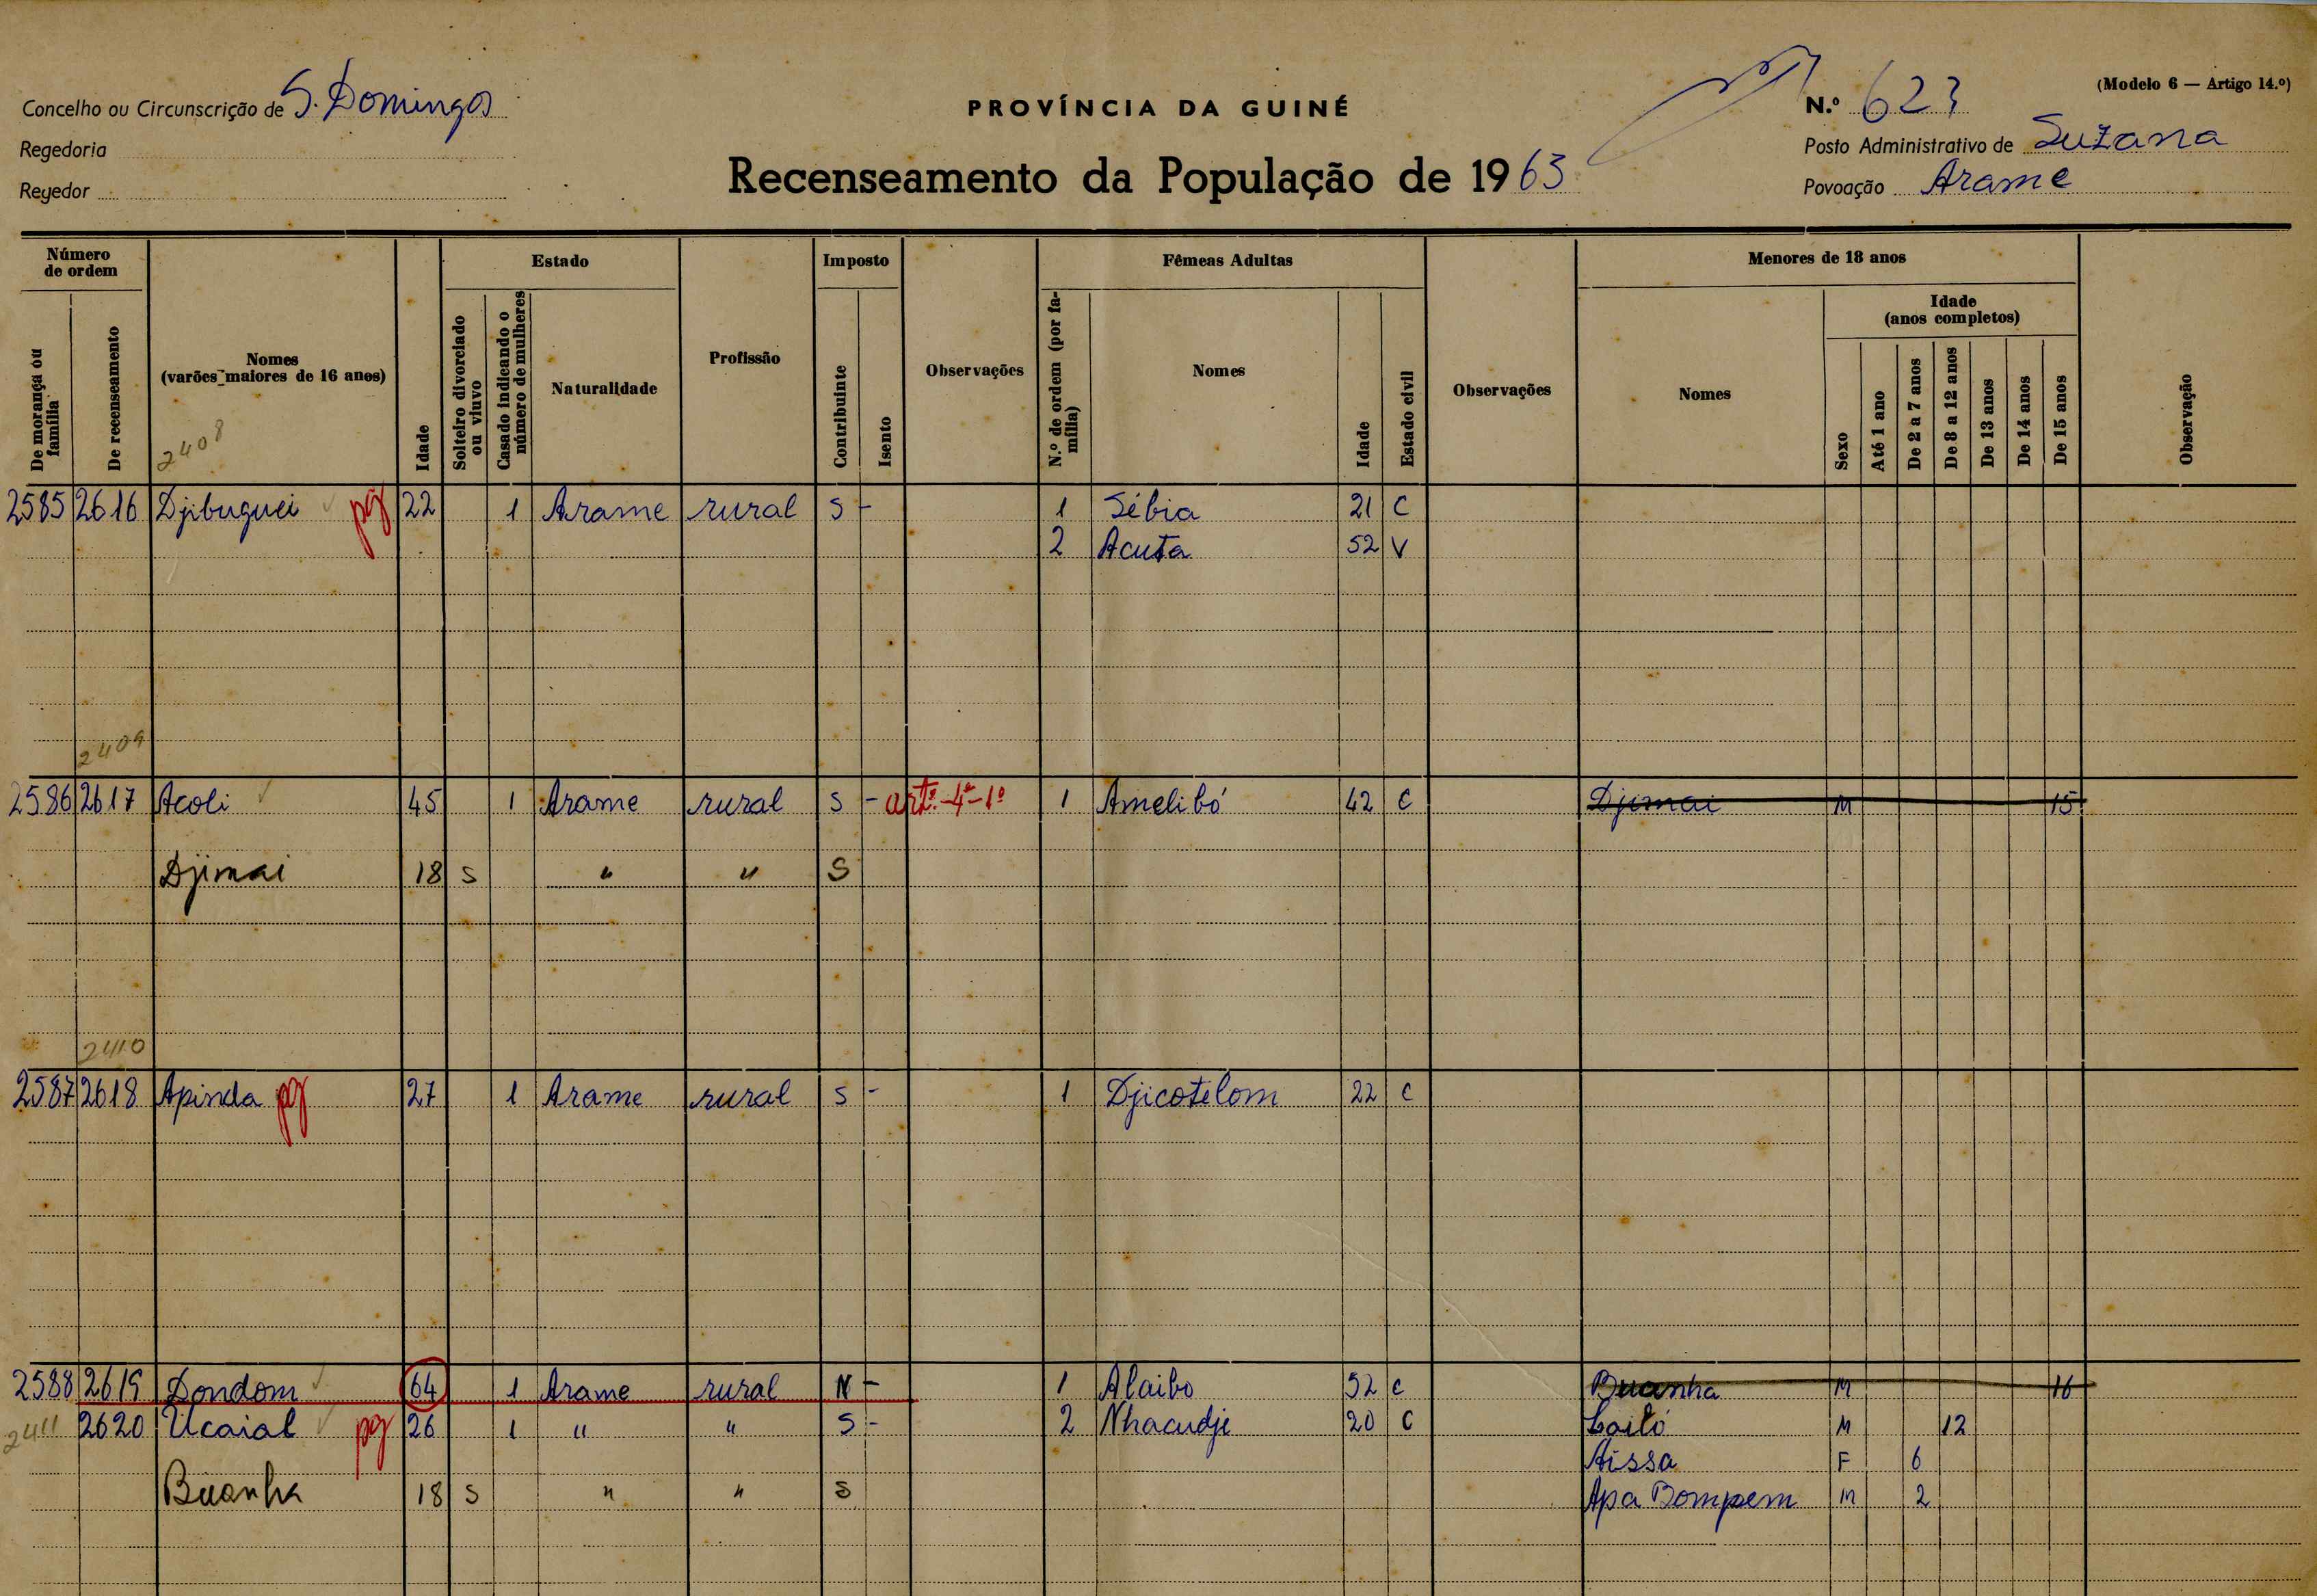 (Modelo 6 — Artigo 14.º)
Concelho ou Circunscrição de S. Domingos
PROVÍNCIA DA GUINÉ
N.º 623
Regedoria
Posto Administrativo de Suzana
Regedor
Recenseamento da População de 1963
Povoação Arame
Número de ordem
Estado
Imposto
Fêmeas Adultas
Menores de 18 anos
Idade (anos completos)
De morança ou família
De recenseamento
Nomes (varões maiores de 16 anos)
Idade
Solteiro divorciado ou viuvo
Casado indicando o número de mulheres
Naturalidade
Profissão
Contribuinte
Isento
Observações
N.º de ordem (por família)
Nomes
Idade
Estado civil
Observações
Nomes
Sexo
Até 1 ano
De 2 a 7 anos
De 8 a 12 anos
De 13 anos
De 14 anos
De 15 anos
Observação
2408
2585 2616 Djibuguei pg 22 1 Arame rural S - 1 Sébia 21 C
2 Acuta 52 V
2409
2586 2617 Acoli 45 1 Arame rural S - artº. 4º-1º 1 Amelibó 42 C Djimai M 15
Djimai 18 S " " S
2410
2587 2618 Apinda pg 27 1 Arame rural S - 1 Djicotelom 22 C
2588 2619 Dondom 64 1 Arame rural N - 1 Alaibo 52 C Buanha M 16
2411 2620 Ucaial pg 26 1 " " S - 2 Nhacudje 20 C Lailó M 12
Aissa F 6
Buanha 18 S " " S Apa Bompem M 2